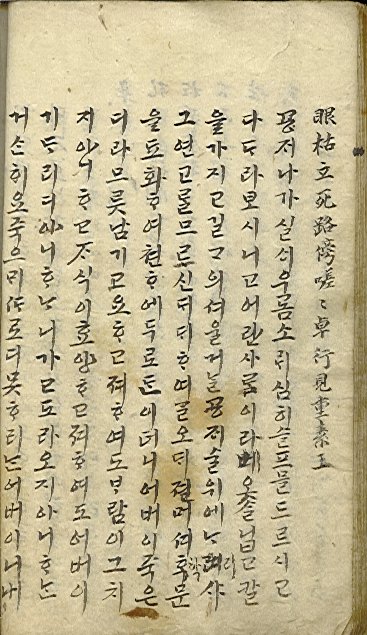 眼枯立死路傍嗟〻卓行見重素王
공저나가실ᄉᆡ우롬소ᄅᆡ심히슬프믈드르시고
다ᄃᆞ라보시니고어란사ᄅᆞᆷ이라뵈오슬닙고갈
을가지고길 의셔울거늘공저술위에ᄂᆞ려샤
그연고ᄅᆞᆯ므르신ᄃᆡᄃᆡᄒᆞ여ᄀᆞᆯ오ᄃᆡ져머셔 문
을됴화ᄒᆞ여텬하에두로ᄃᆞᆫ이더니어버이죽은
디라므릇남기고요ᄒᆞ고져ᄒᆞ여도ᄇᆞ람이그치
지아니ᄒᆞ고ᄌᆞ식이효양ᄒᆞ고져ᄒᆞ여도어버이
기ᄃᆞ리디아니ᄒᆞᄂᆞ니가고도라오지아니ᄒᆞᄂᆞᆫ
거ᄉᆞᆫᄒᆡ오죽으ᄆᆡ ᄯᆞ로디못ᄒᆞ리ᄂᆞᆫ어버이니내